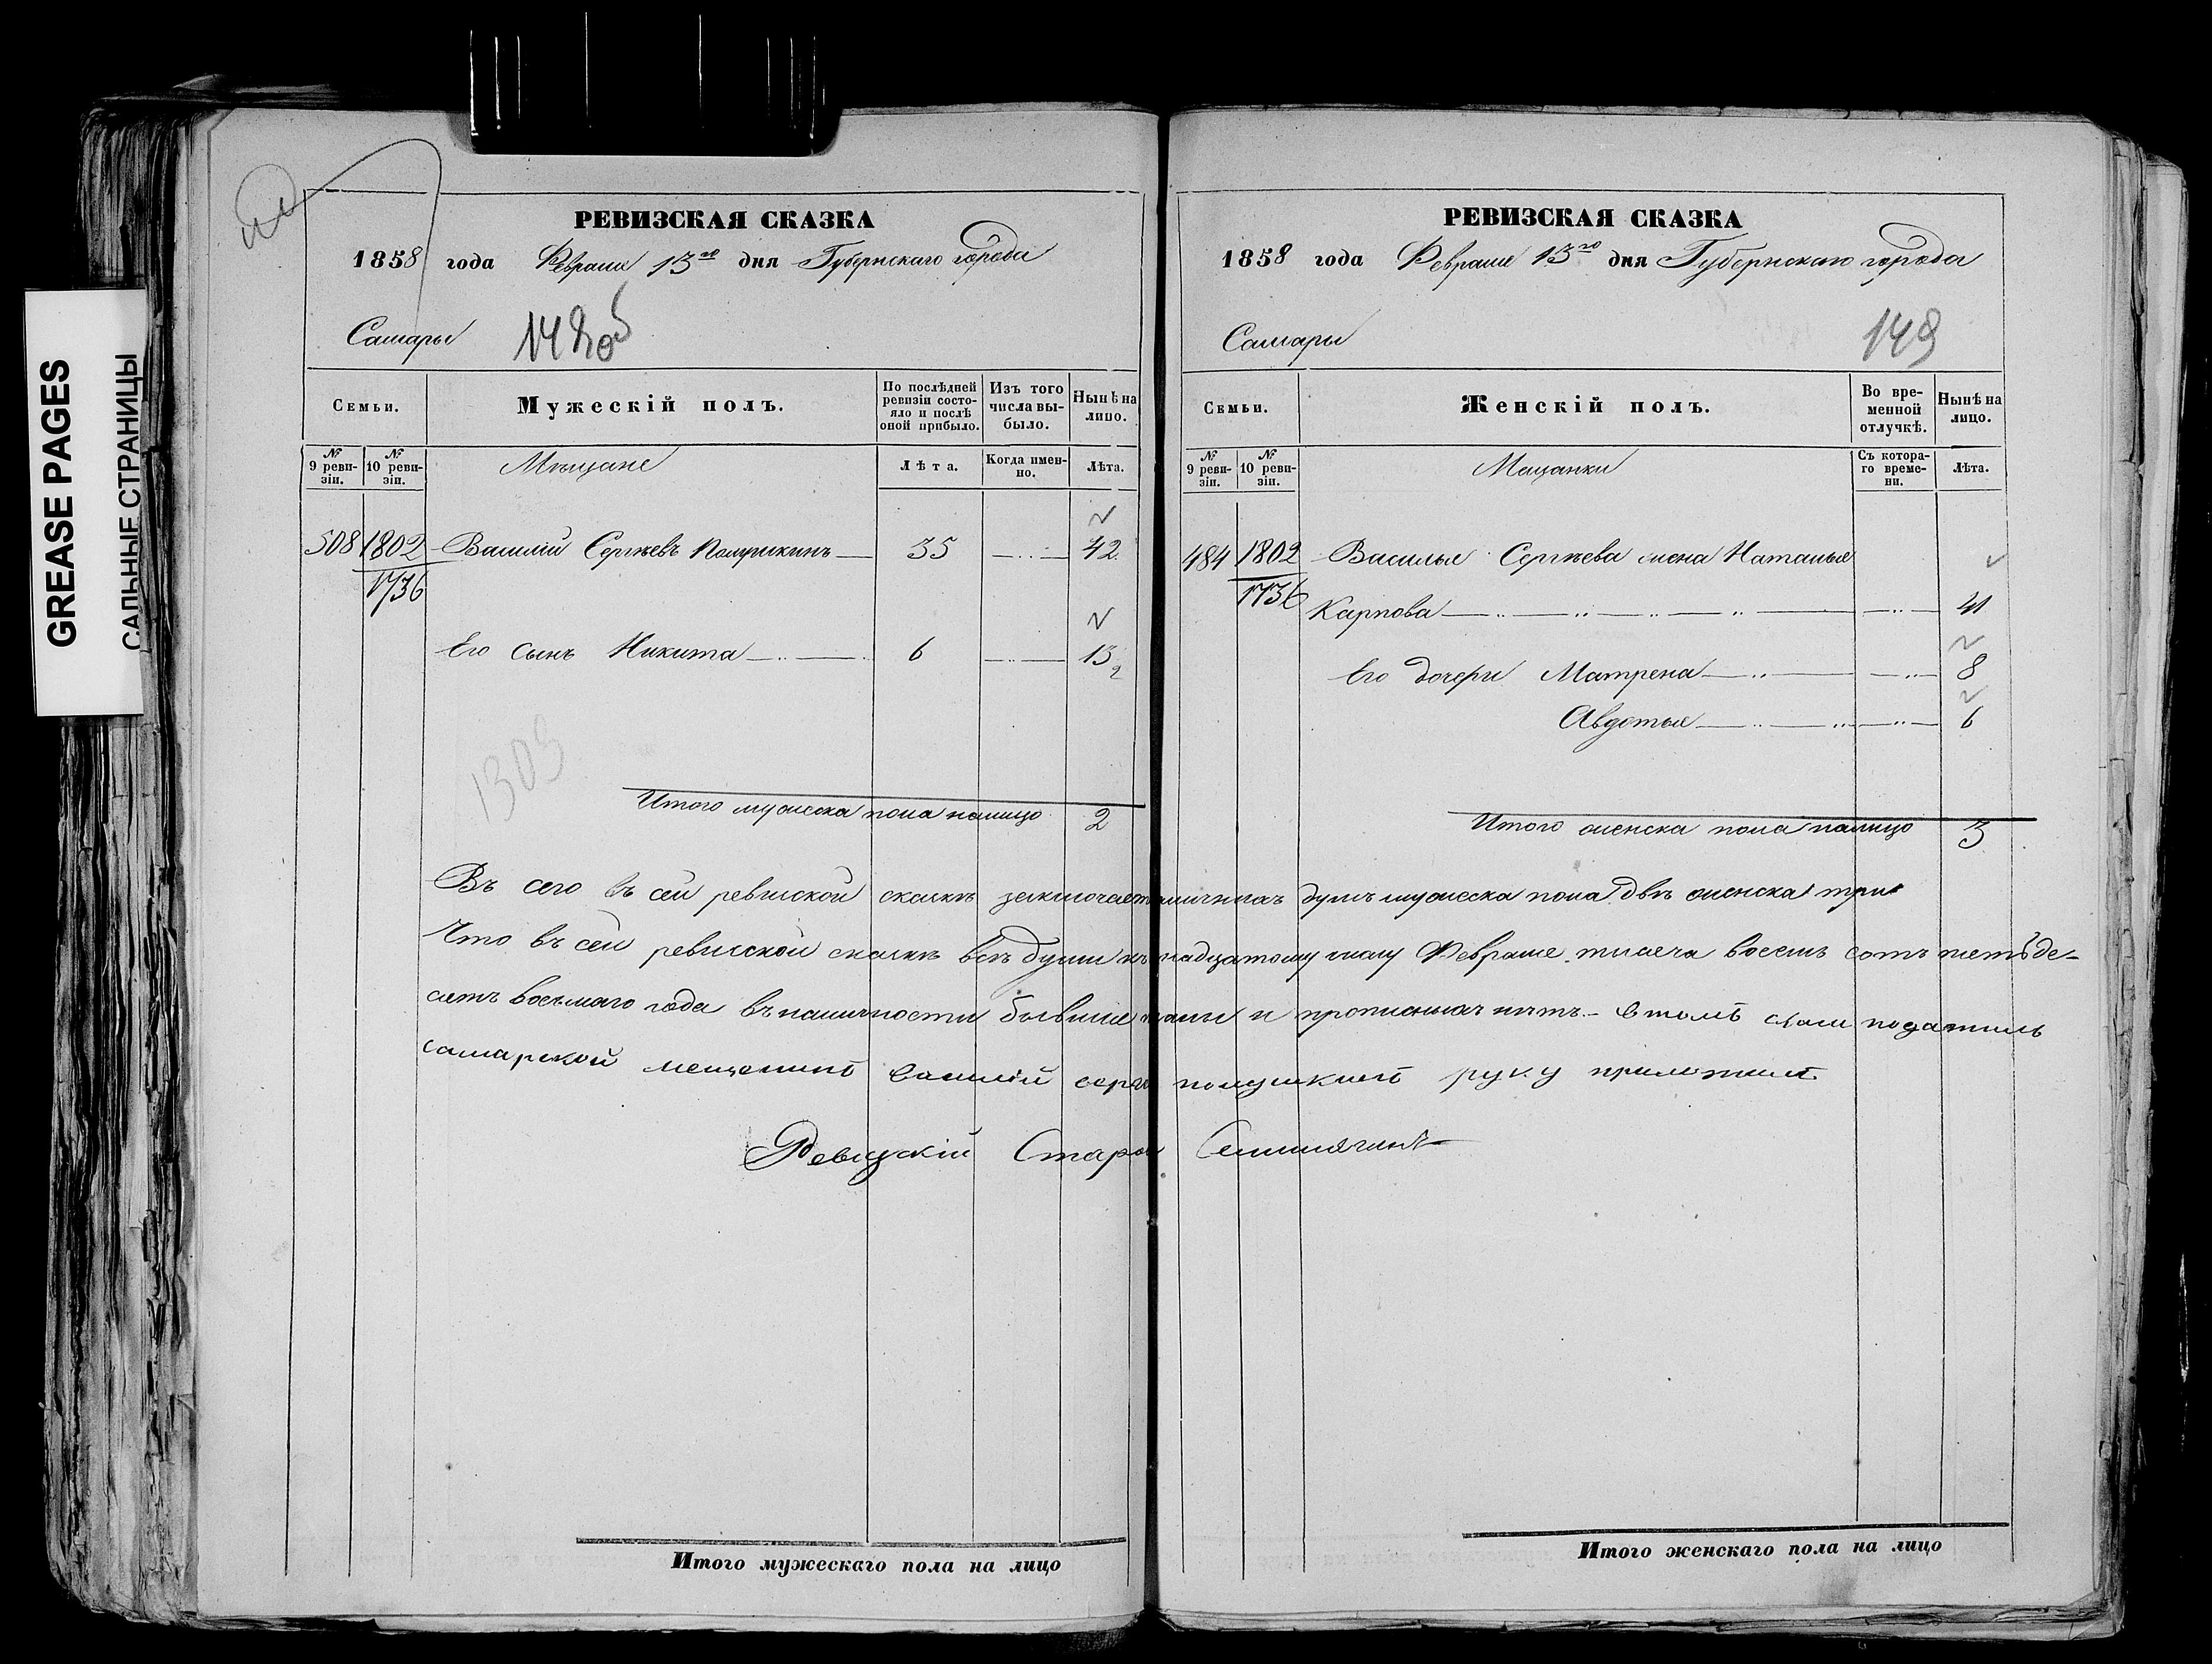 GREASE PAGES
САЛЬНЫЕ СТРАНИЦЫ
РЕВИЗСКАЯ СКАЗКА
1858 года Февраля 13го дня Губернскаго города
Самары 148об
Семьи.
Мужескій полъ.
По послѣдней ревизіи состояло и послѣ оной прибыло.
Изъ того числа выбыло.
Нынѣ на лицо.
№ 9 ревизіи.
№ 10 ревизіи.
Мѣщане
Лѣта.
Когда именно.
Лѣта.
508 1802 Василій Сергѣевъ Полушкинъ 35 42
1736
Его сынъ Никита 6 13
1309
Итого мужеска пола налицо 2
РЕВИЗСКАЯ СКАЗКА
1858 года Февраля 13го дня Губернскаго города
Самары 149
Семьи.
Женскій полъ.
Во временной отлучкѣ.
Нынѣ на лицо.
№ 9 ревизіи.
№ 10 ревизіи.
Мещанки
Съ котораго времени.
Лѣта.
484 1802 Василья Сергѣева жена Наталья
1736 Карпова 41
Его дочери Матрена 8
Авдотья 6
Итого женска пола налицо 3
въ сей ревиской скаскѣ заключает наличнихъ душъ мужеска пола двѣ женска три
Что въ сей ревиской скаскѣ всѣ души надцатому числу Февраля тысеча восемь сотъ петьде-
сятъ восьмаго года въ наличности бывшия и прописныхъ нѣтъ. втомъ податиль
самарской мещенинъ василій полушкинъ руку приложилъ
Ревизскій Стар
Итого мужескаго пола на лицо
Итого женскаго пола на лицо